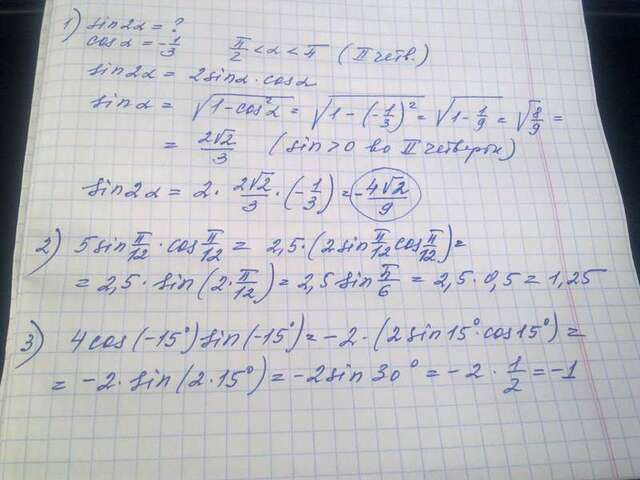 1) sin2α = ?
cosα = -1/3   π/2 < α < π (II четв.)
sin2α = 2sinα·cosα
sinα = √(1-cos²α) = √(1-(-1/3)²) = √(1-1/9) = √(8/9) =
= 2√2/3 (sin>0 во II четверти)
sin2α = 2·2√2/3·(-1/3) = -4√2/9
2) 5sin π/12 · cos π/12 = 2,5·(2sin π/12 cos π/12) =
= 2,5·sin(2·π/12) = 2,5 sin π/6 = 2,5·0,5 = 1,25
3) 4cos(-15°)sin(-15°) = -2·(2sin15°·cos15°) =
= -2·sin(2·15°) = -2sin30° = -2·1/2 = -1